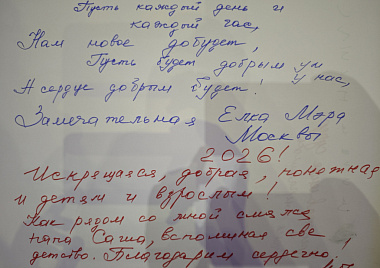 Пусть каждый день и
каждый час,
Нам новое добудет,
Пусть будет добрым ум
у нас,
А сердце добрым будет!
Замечательная Елка Мэра
Москвы
2026!
Искрящаяся, добрая, понятная
и детям и взрослым!
Как рядом со мной смеялся
папа Саша, вспоминая свое
детство. Благодарим сердечно,